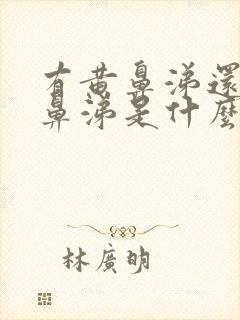 有黃鼻涕還
鼻涕是什麼
林廣明